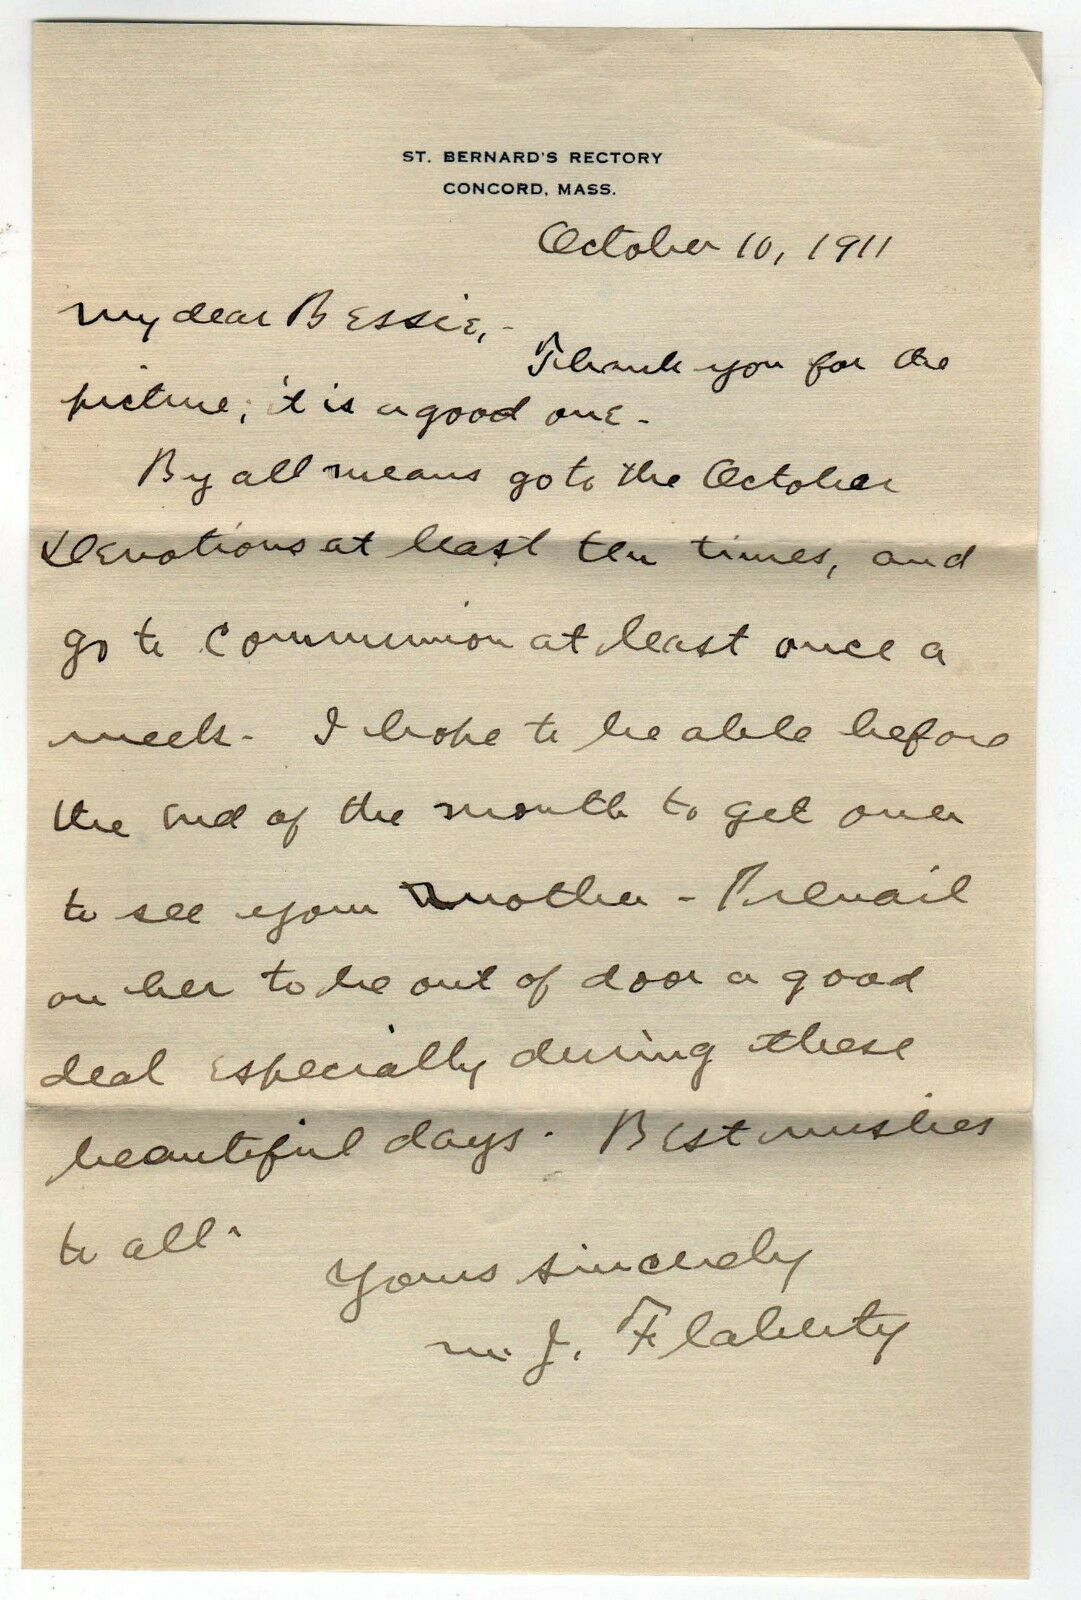 ST. BERNARD'S RECTORY
CONCORD, MASS.
October 10, 1911
My dear Bessie,-
Thank you for the
picture; it is a good one-
By all means go to the October
Devotions at least ten times, and
go to Communion at least once a
week- I hope to be able before
the end of the month to get over
to see your mother - Prevail
on her to be out of door a good
deal especially during these
beautiful days. Best wishes
to all.
Yours sincerely
M. J. Flaherty